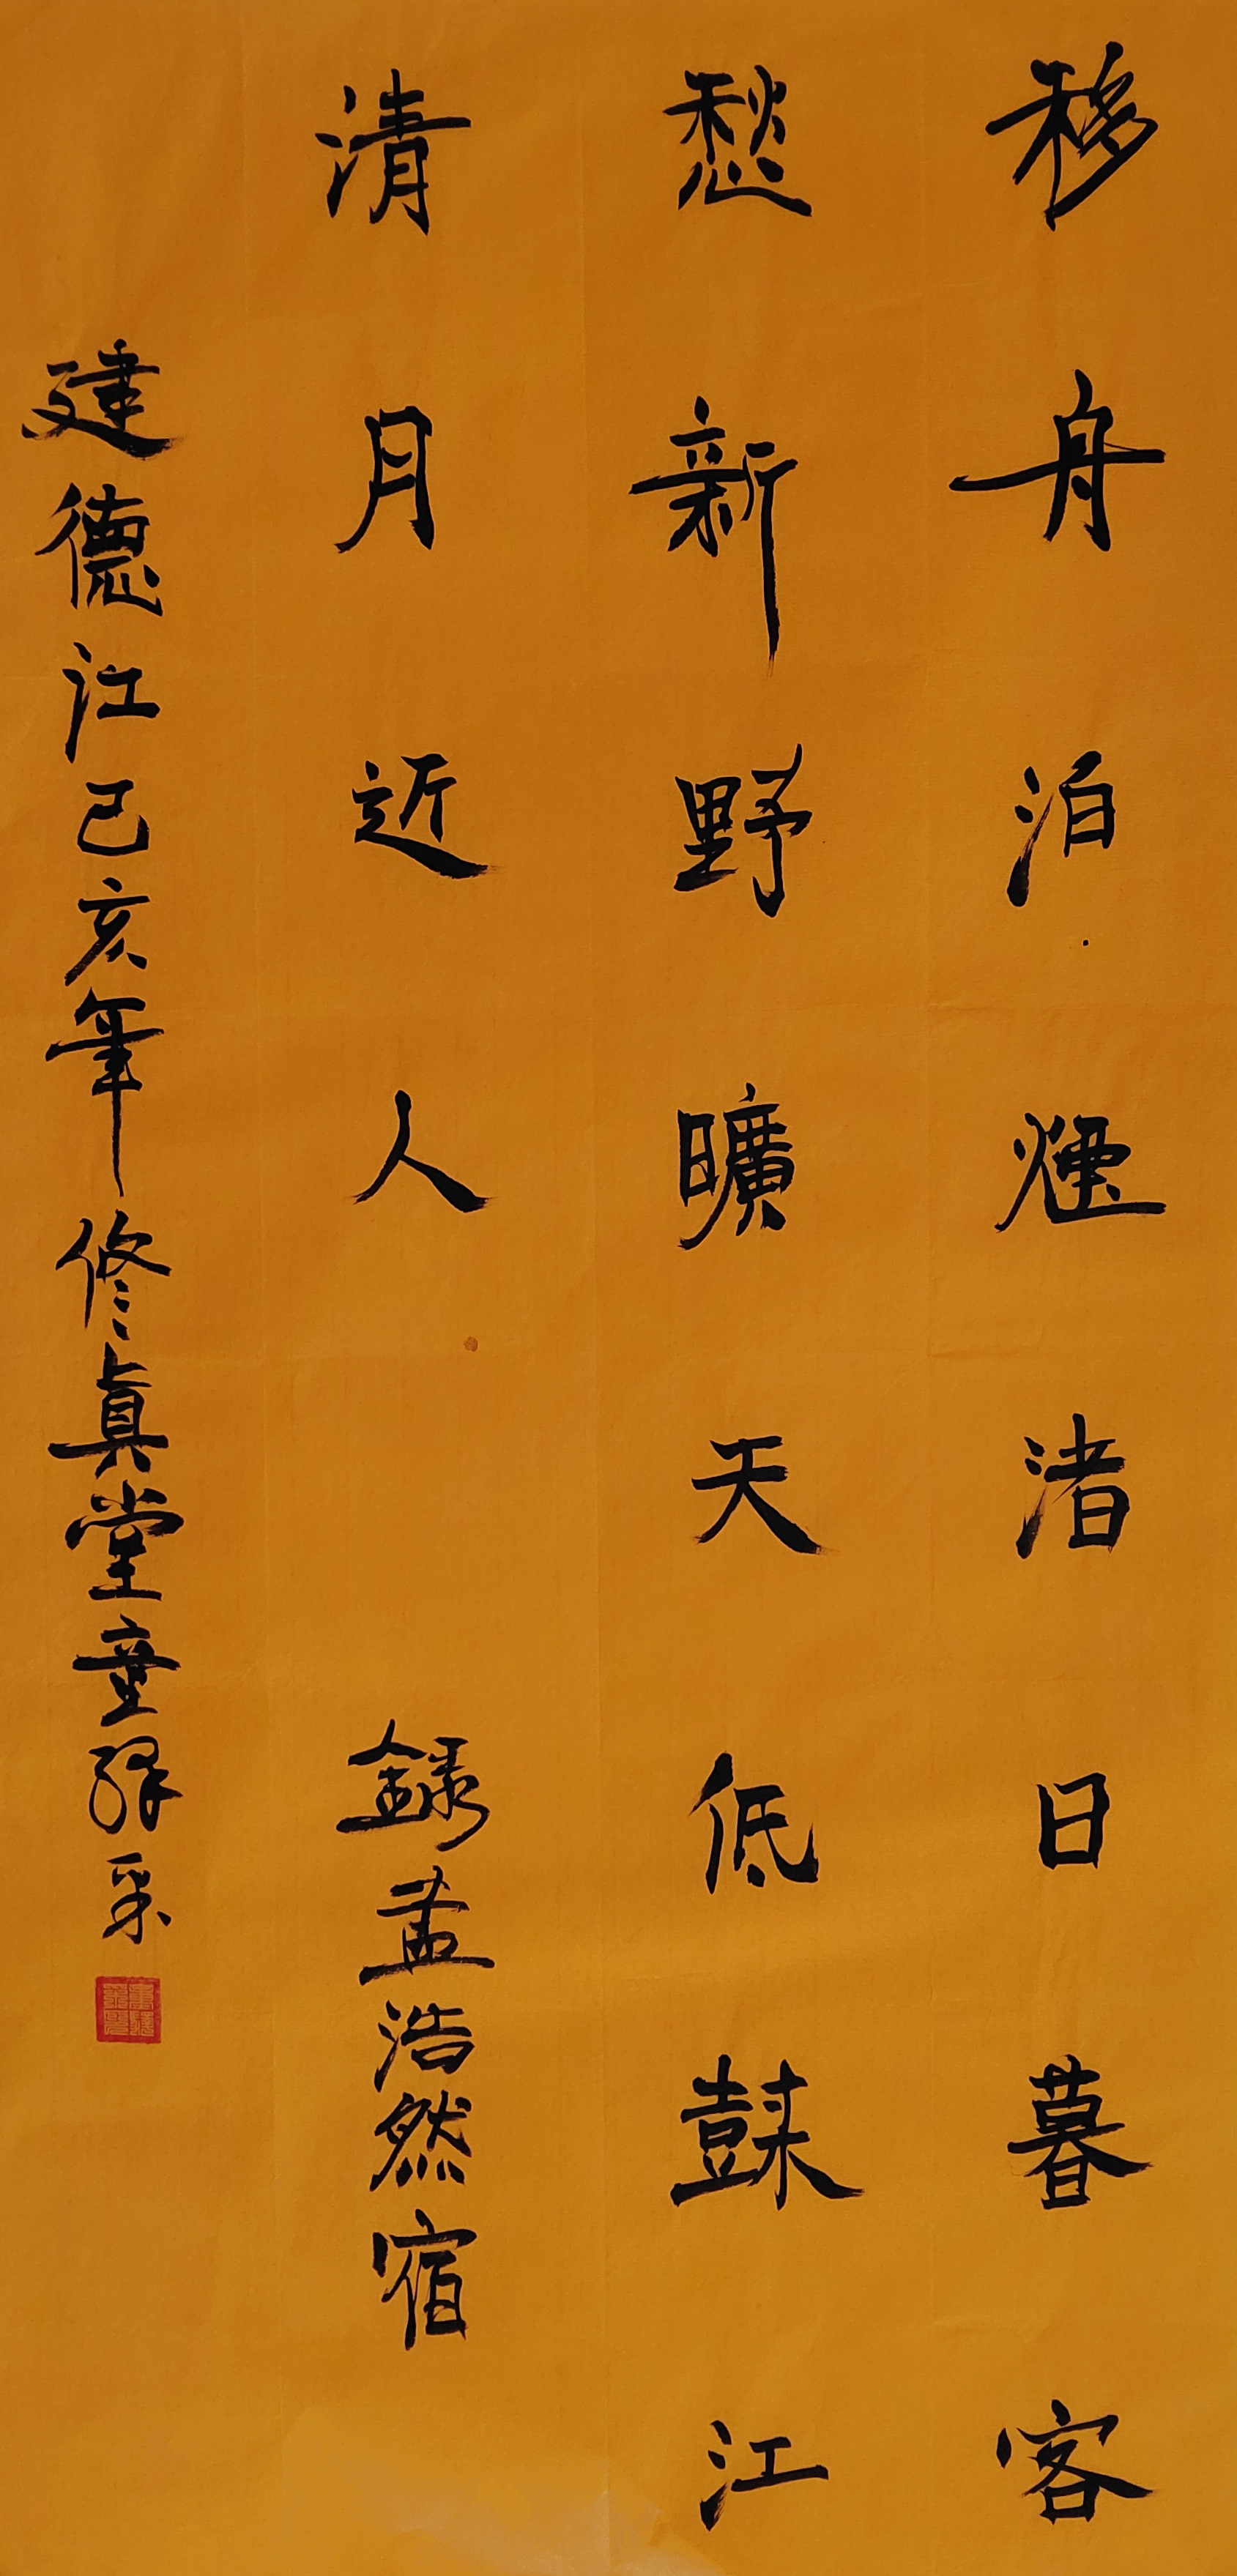 移舟泊煙渚日暮客
愁新野曠天低樹江
清月近人
錄孟浩然宿
建德江己亥年修真堂童采